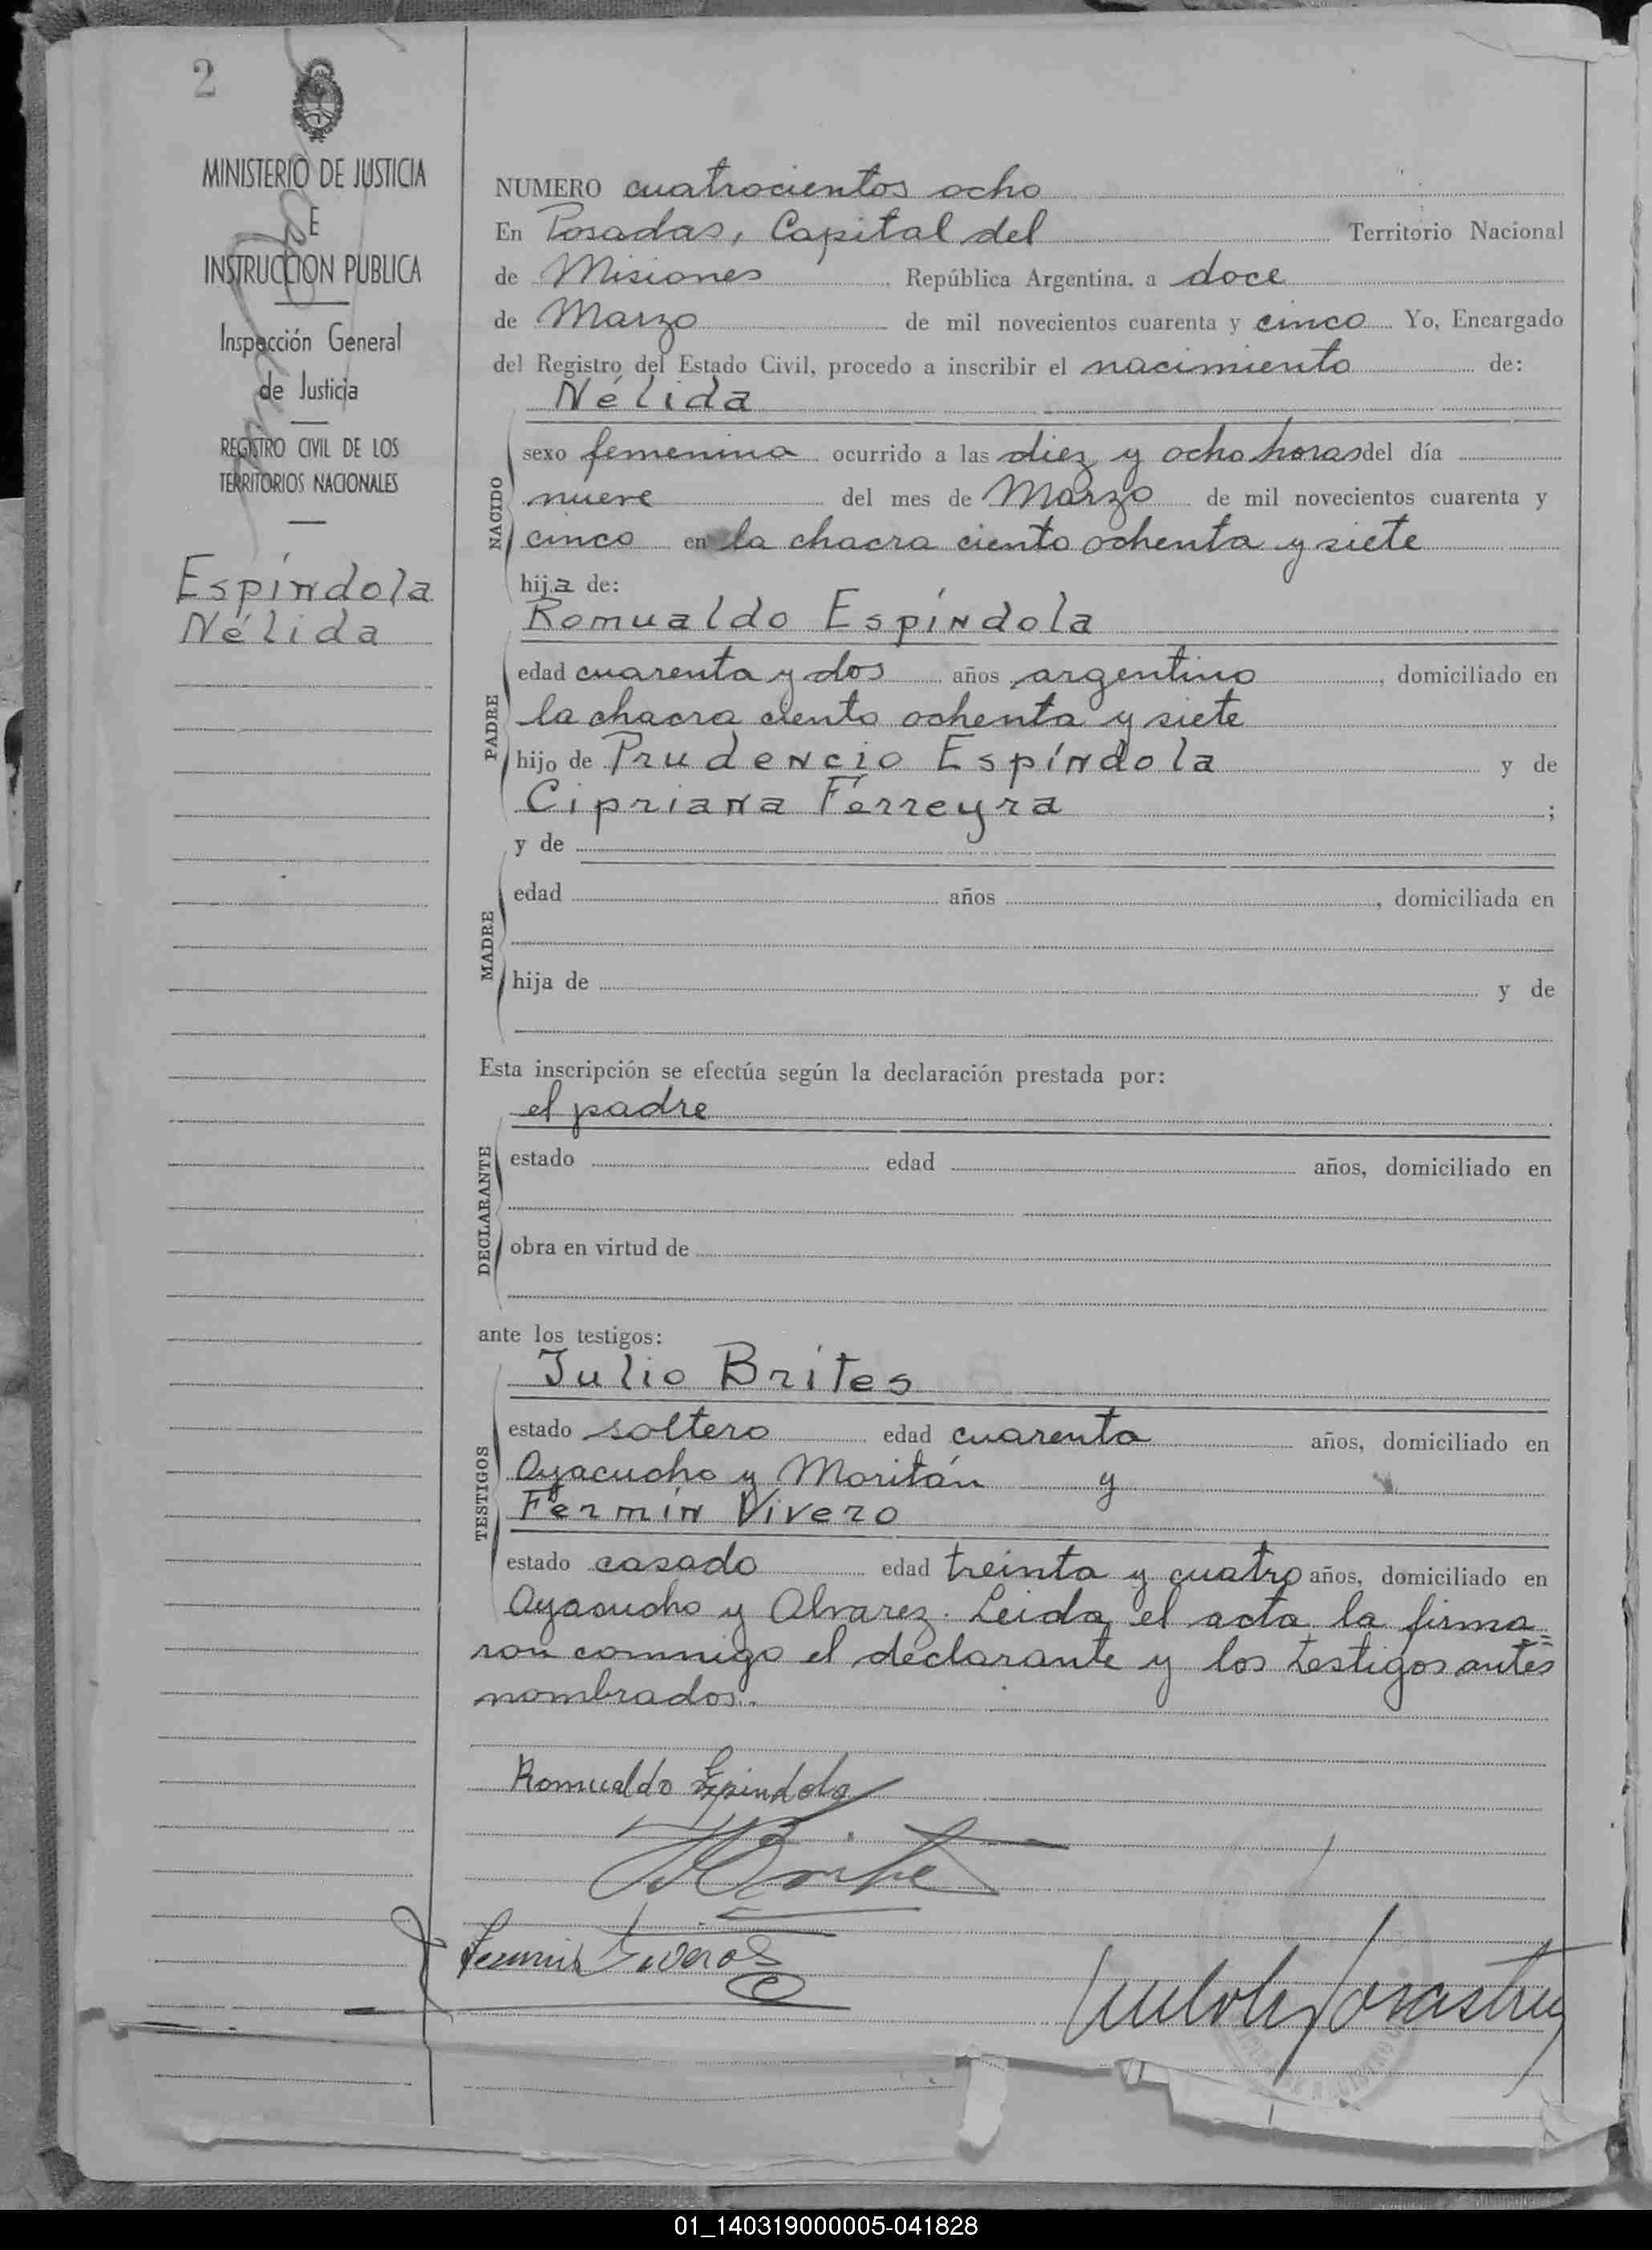 2
MINISTERIO DE JUSTICIA
E
INSTRUCCION PUBLICA
Inspección General
de Justicia
REGISTRO CIVIL DE LOS
TERRITORIOS NACIONALES
Espíndola
Nélida
NUMERO cuatrocientos ocho
En Posadas, Capital del Territorio Nacional
de Misiones, República Argentina, a doce
de Marzo de mil novecientos cuarenta y cinco Yo, Encargado
del Registro del Estado Civil, procedo a inscribir el nacimiento de:
Nélida
NACIDO
sexo femenino ocurrido a las diez y ocho horas del día
nueve del mes de Marzo de mil novecientos cuarenta y
cinco en la chacra ciento ochenta y siete
hija de:
Romualdo Espíndola
PADRE
edad cuarenta y dos años argentino, domiciliado en
la chacra ciento ochenta y siete
hijo de Prudencio Espíndola y de
Cipriana Ferreyra;
y de
MADRE
edad años, domiciliada en
hija de y de
Esta inscripción se efectúa según la declaración prestada por:
el padre
DECLARANTE
estado edad años, domiciliado en
obra en virtud de
ante los testigos:
Julio Brites
TESTIGOS
estado soltero edad cuarenta años, domiciliado en
Ayacucho y Moritán y
Fermín Vivero
estado casado edad treinta y cuatro años, domiciliado en
Ayacucho y Alvarez. Leida el acta la firma=
ron conmigo el declarante y los testigos antes
nombrados.
Romualdo Espindola
01_140319000005-041828